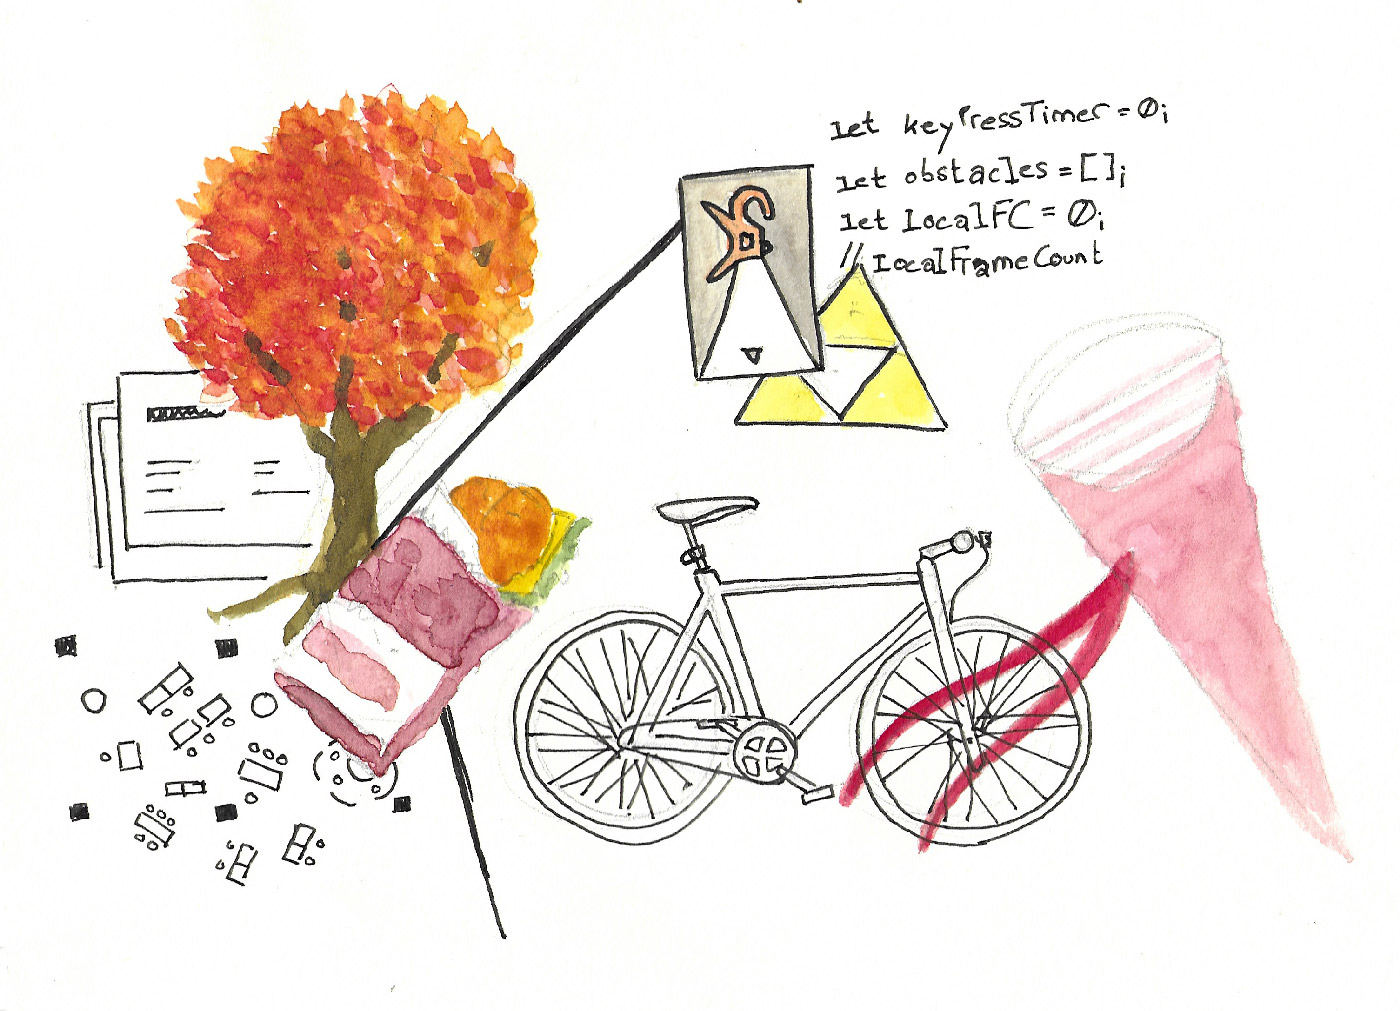 let keyPressTimer = 0;
let obstacles = [];
let LocalFC = 0;
// LocalFrameCount